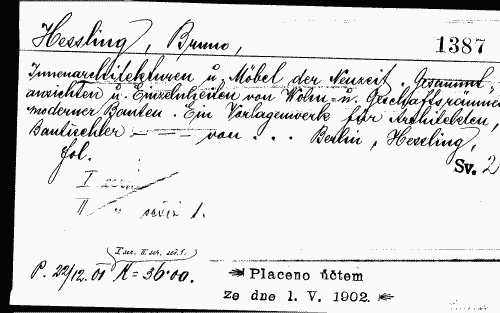 Hessling, Bruno,
1387
Innenarchitekturen u. Möbel der Neuzeit. Gesammt-
ansichten u. Einzelnheiten von Wohn- u. Geschäftsräumen
moderner Bauten. Ein Vorlagenwerk für Architekten,
Bautischler — — — von . . . Berlin, Hessling,
fol.
Sv. 2
I serii
II " serii 1.
(I ser. II ser. seš. 1.)
P. 22/12. 01 K = 36·00.
Placeno účtem
ze dne 1. V. 1902.